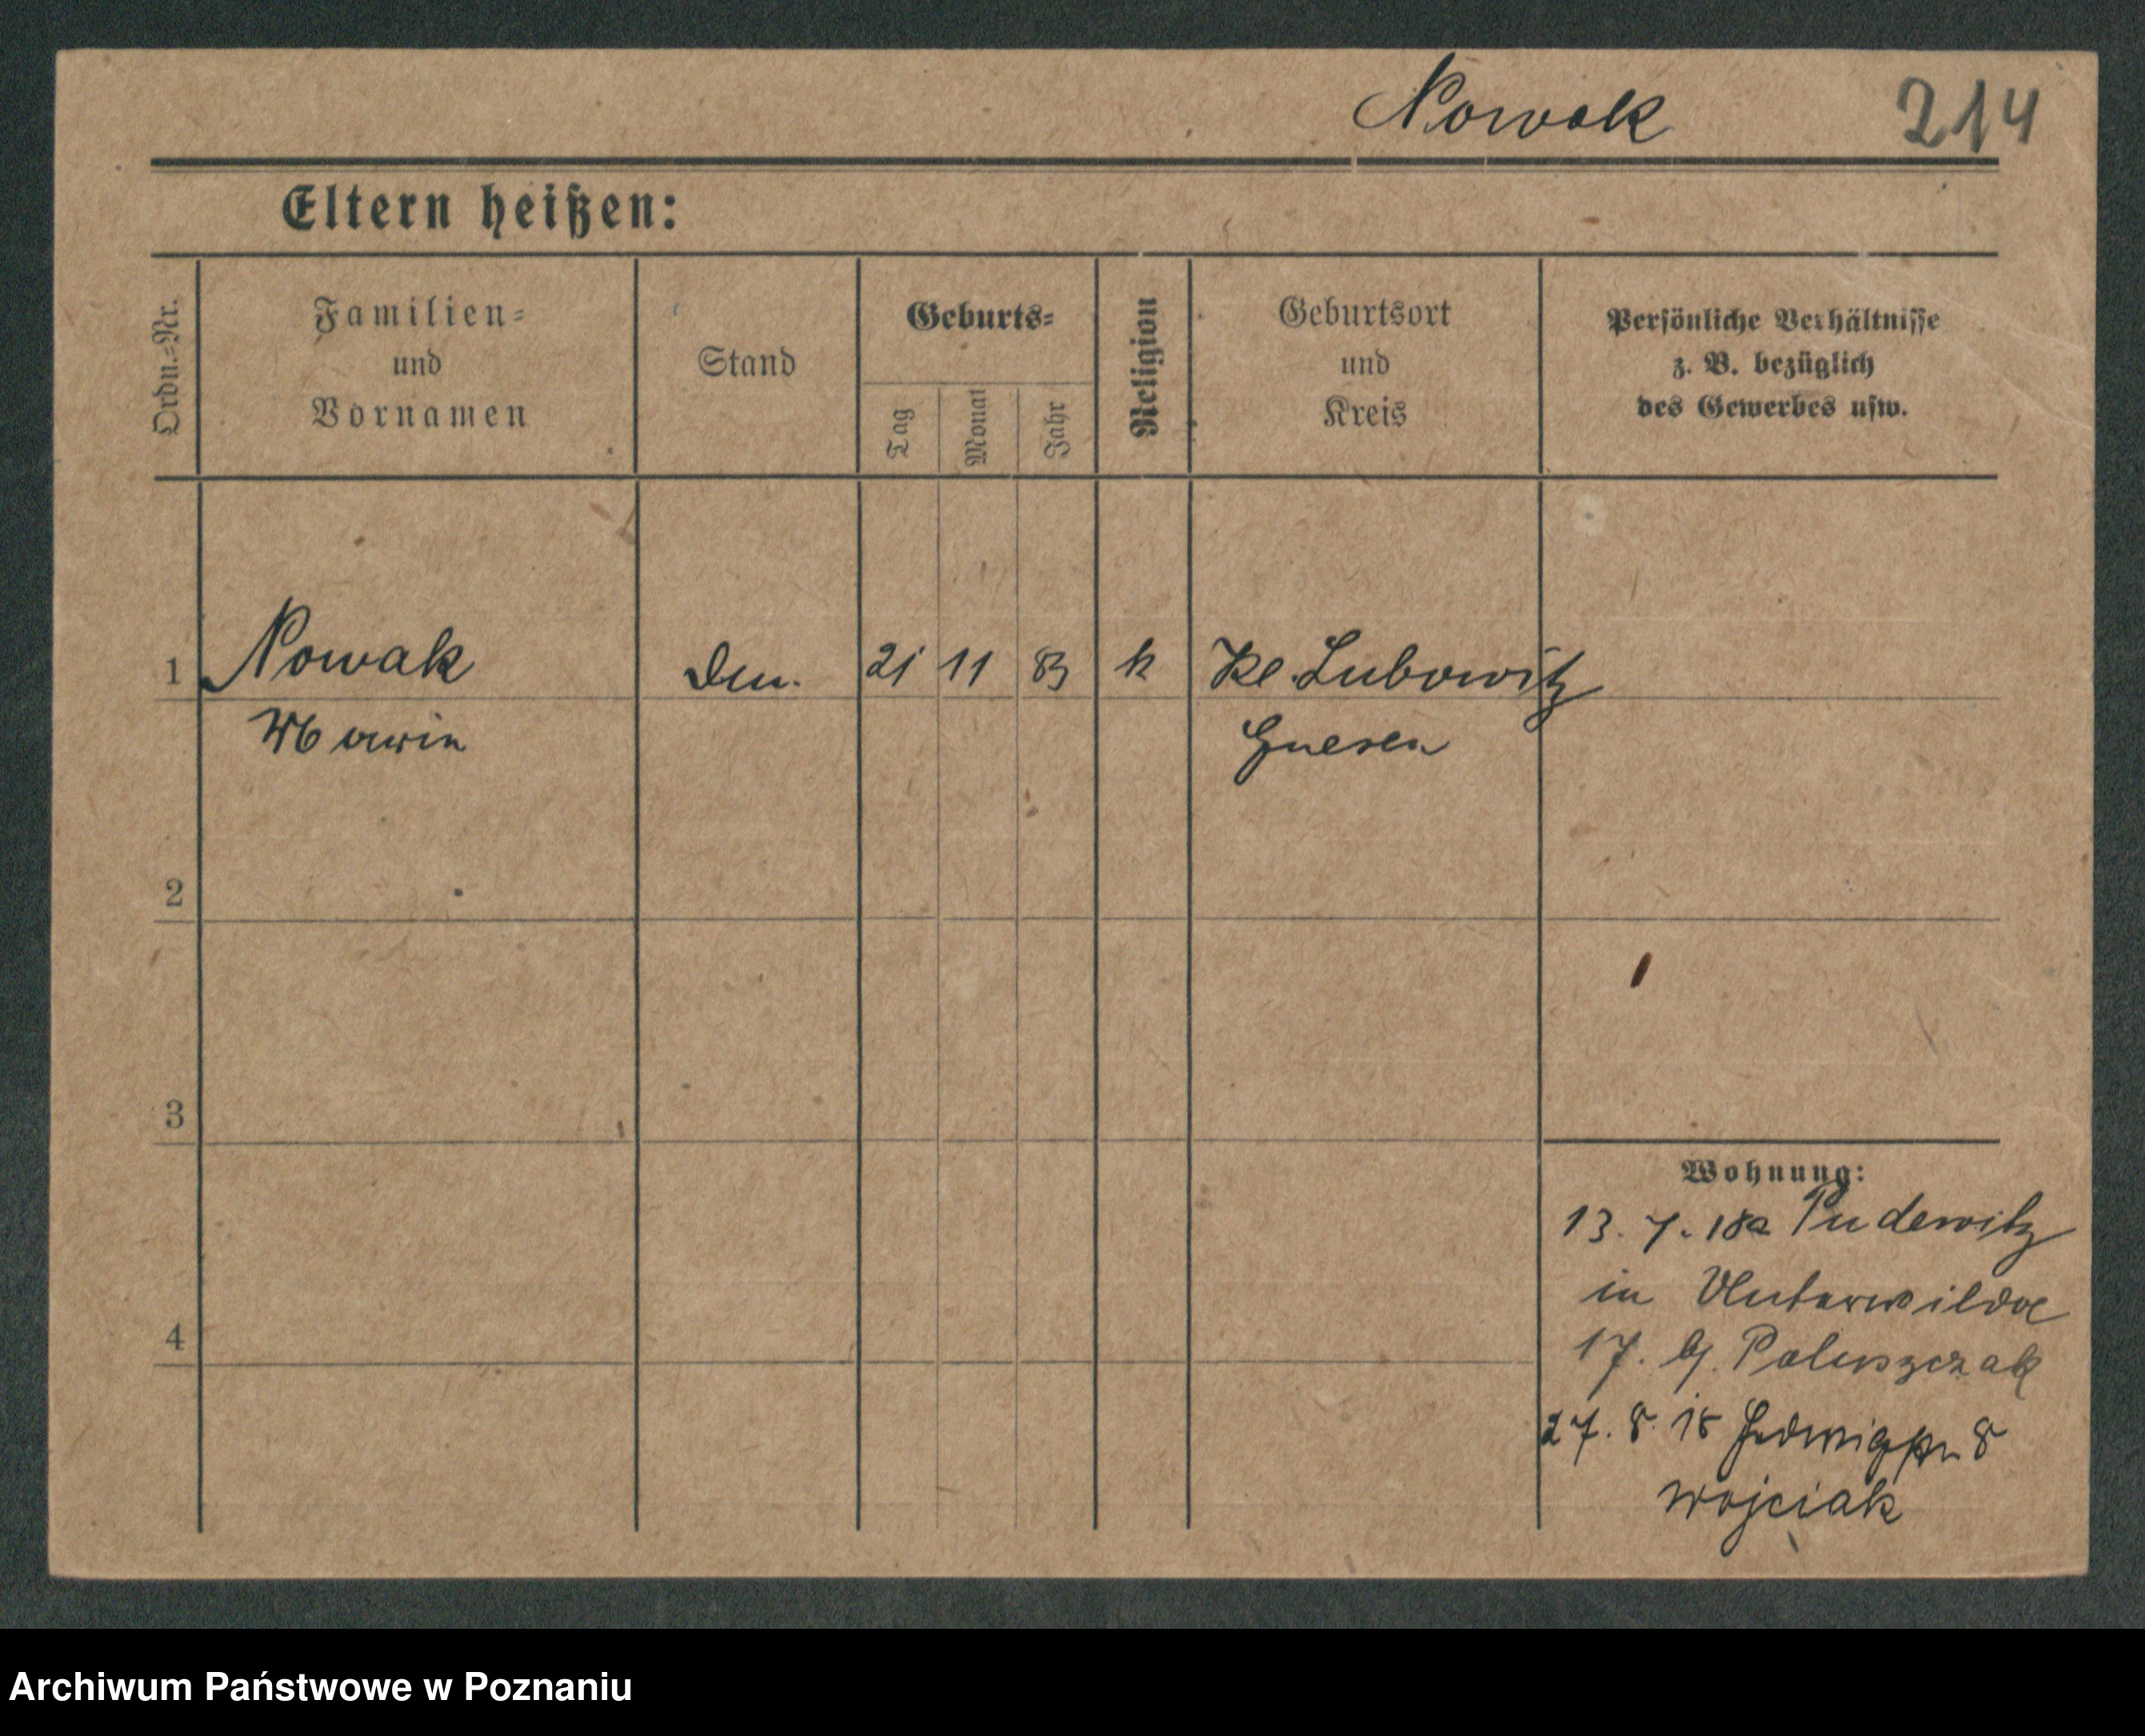 Nowak 214
Eltern heißen:
Ordn.=Nr.
Familien=
und
Vornamen
Stand
Geburts=
Tag
Monat
Jahr
Religion
Geburtsort
und
Kreis
Persönliche Verhältnisse
z. B. bezüglich
des Gewerbes usw.
1 Nowak 21 11 83 k Kl. Lubowitz
Gnesen
2
3
4
Wohnung:
13. 7. 18 a Pudewitz
in Unterwilda
17. b/. Paluszczak
27. 8. 18 8
Wojciak
Archiwum Państwowe w Poznaniu